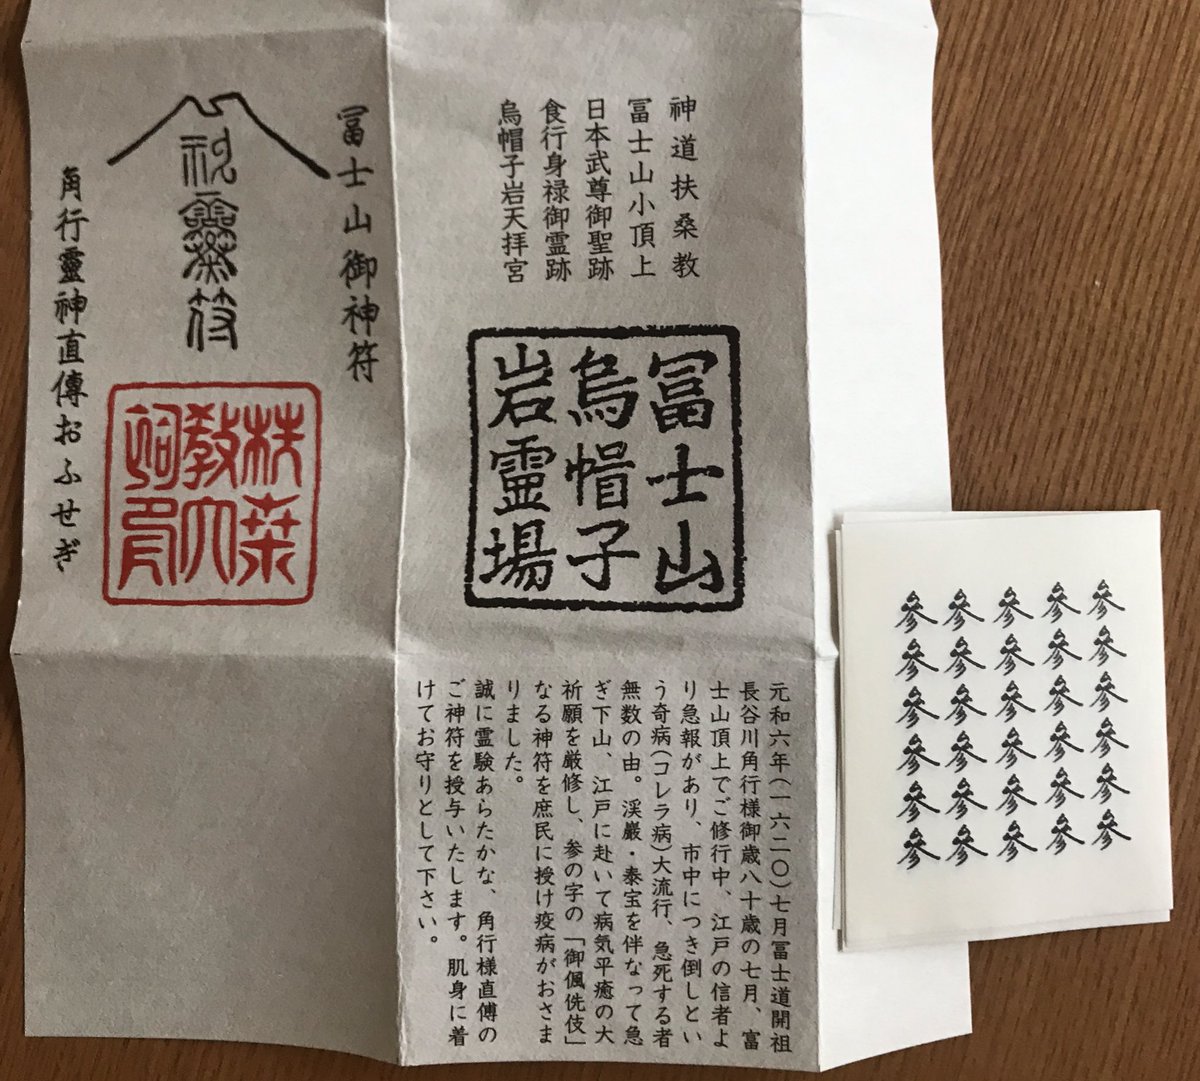 神道扶桑教
冨士山小頂上
日本武尊御聖跡
食行身禄御霊跡
烏帽子岩天拝宮
冨士山
烏帽子
岩霊場
元和六年(一六二〇)七月冨士道開祖
長谷川角行様御歳八十歳の七月、富
士山頂上でご修行中、江戸の信者よ
り急報があり、市中につき倒しとい
う奇病(コレラ病)大流行、急死する者
無数の由。渓巌・泰宝を伴なって急
ぎ下山、江戸に赴いて病気平癒の大
祈願を厳修し、参の字の「御偑侁伎」
なる神符を庶民に授け疫病がおさま
りました。
誠に霊験あらたかな、角行様直傳の
ご神符を授与いたします。肌身に着
けてお守りとして下さい。
冨士山御神符
角行靈神直傳おふせぎ
扶桑
教大
参参参参参参
参参参参参参
参参参参参参
参参参参参参
参参参参参参